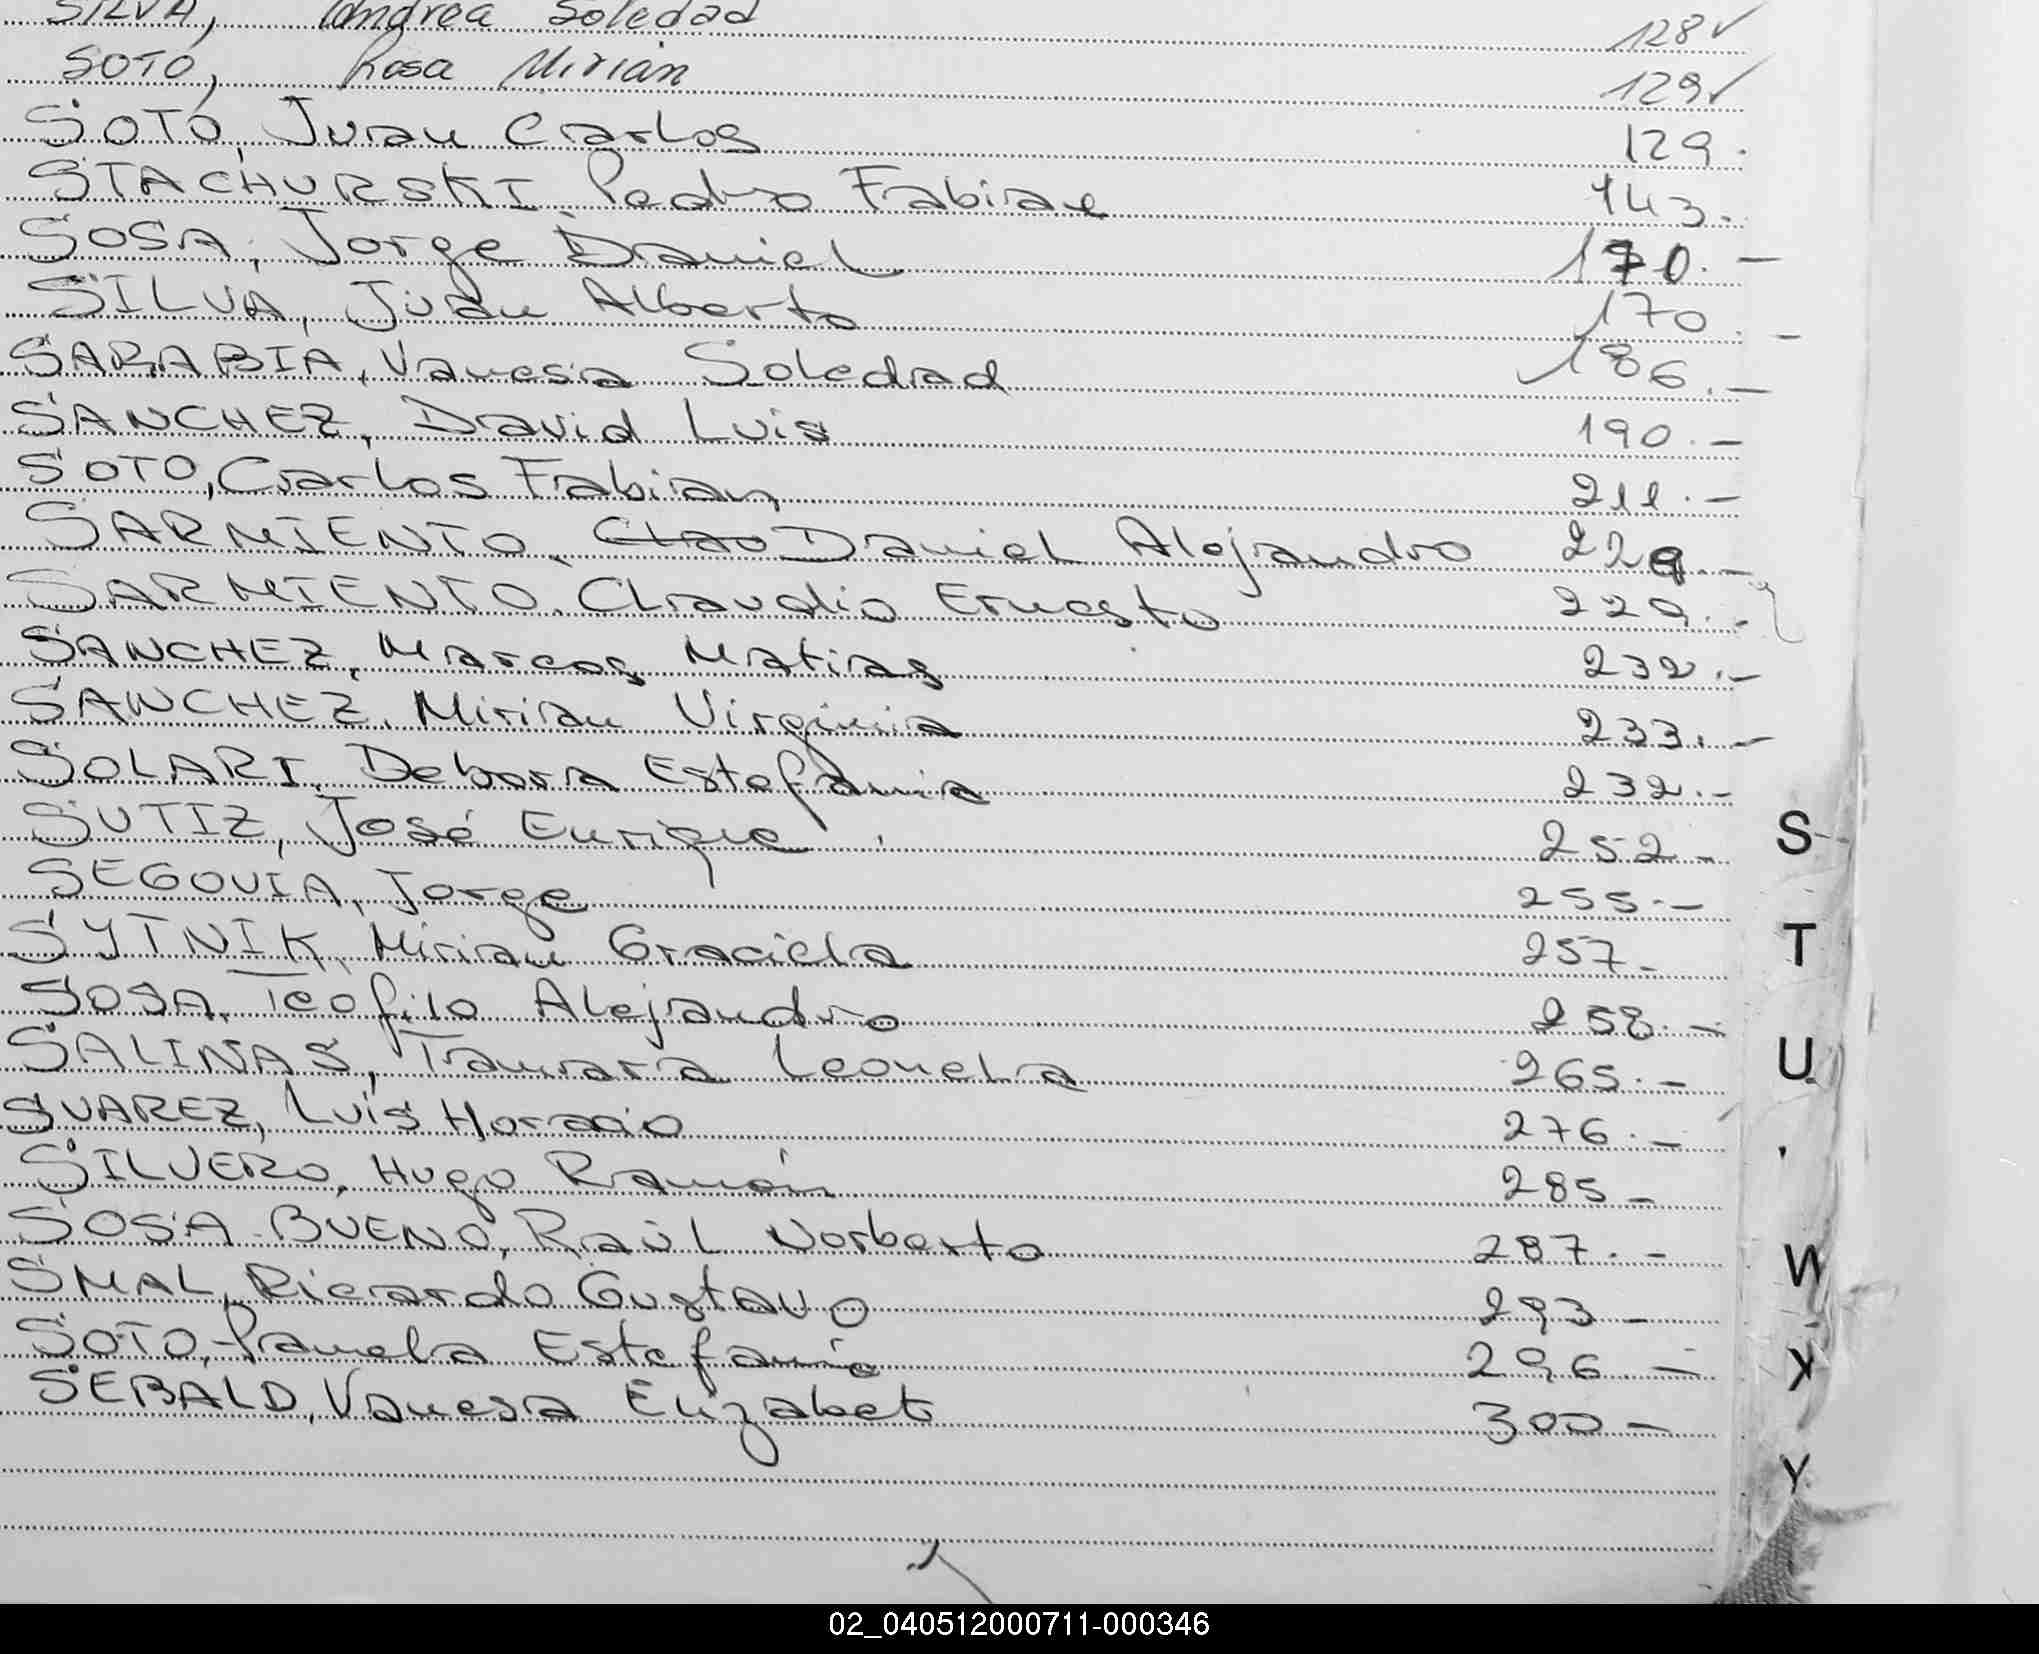 SILVA, Andrea Soledad 128✓
SOTO, Rosa Mirian 129✓
SOTO, Juan Carlos 129.
STACHURSKI, Pedro Fabian 143.-
SOSA, Jorge Daniel 170.-
SILVA, Juan Alberto 170.-
SARABIA, Vanesa Soledad 186.-
SANCHEZ, David Luis 190.-
SOTO, Carlos Fabian 211.-
SARMIENTO, Daniel Alejandro 229.-
SARMIENTO, Claudio Ernesto 229.-
SANCHEZ, Marcos Matias 232.-
SANCHEZ, Mirian Virginia 233.-
SOLARI, Debora Estefania 232.-
SUTIZ, José Enrique 252-
SEGOVIA, Jorge 255.-
SYTNIK, Mirian Graciela 257-
SOSA, Teofilo Alejandro 258.-
SALINAS, Tamara Leonela 265.-
SUAREZ, Luis Horacio 276.-
SILVERO, Hugo Ramón 285-
SOSA BUENO, Raúl Norberto 287.-
SMAL, Ricardo Gustavo 293-
SOTO, Pamela Estefania 296-
SEBALD, Vanesa Elizabet 300-
S
T
U
W
X
Y
02_040512000711-000346